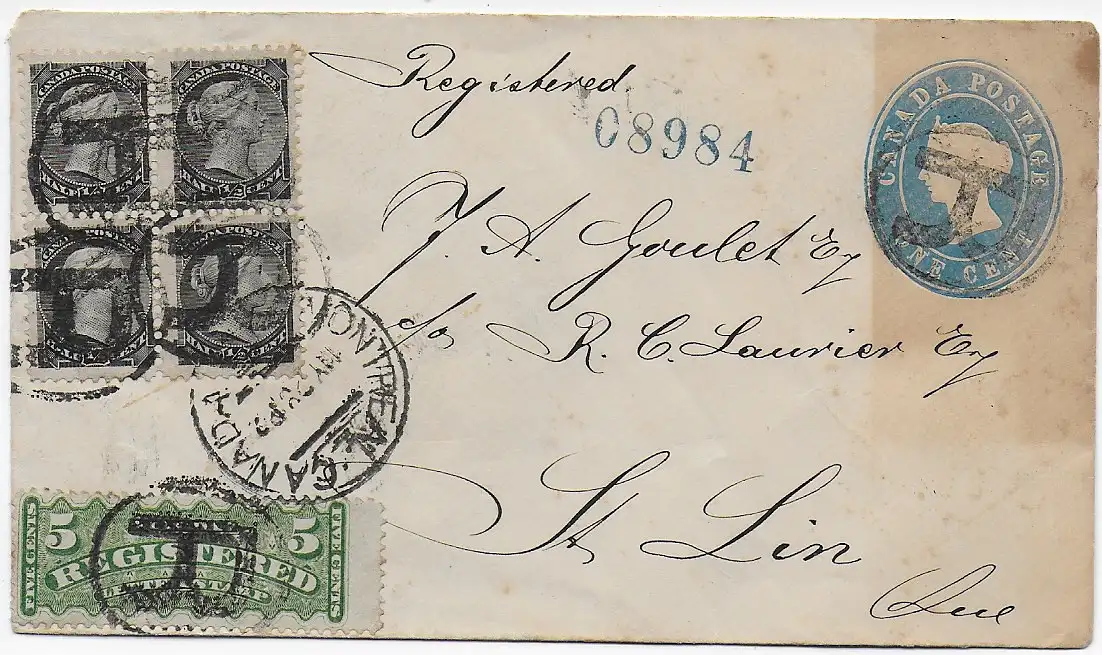 CANADA POSTAGE
HALF 1/2 CENT
CANADA POSTAGE
HALF 1/2 CENT
CANADA POSTAGE
HALF 1/2 CENT
CANADA POSTAGE
HALF 1/2 CENT
Registered.
08984
CANADA POSTAGE
ONE CENT
J. A. Goulet Esq
c/o R. C. Laurier Esq
St Lin
Que
MONTREAL CANADA
AM
5 5
FIVE CENTS
REGISTERED
LETTER STAMP
FIVE CENTS